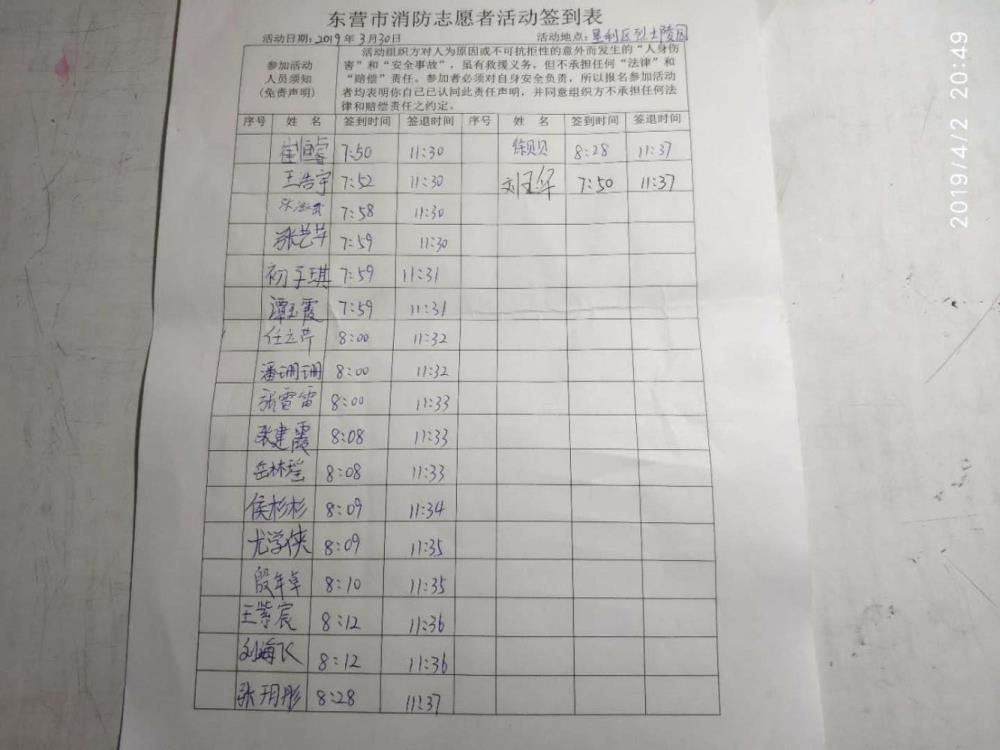 东营市消防志愿者活动签到表
活动日期：2019年3月30日 活动地点：垦利区烈士陵园
参加活动
人员须知
（免责声明）
活动组织方对人为原因或不可抗拒性的意外而发生的“人身伤
害”和“安全事故”，虽有救援义务，但不承担任何“法律”和
“赔偿”责任。参加者必须对自身安全负责，所以报名参加活动
者均表明你自己已认同此责任声明，并同意组织方不承担任何法
律和赔偿责任之约定。
序号 姓 名 签到时间 签退时间 序号 姓 名 签到时间 签退时间
7:50 11:30 徐贝贝 8:28 11:37
王浩宇 7:52 11:30 刘玉华 7:50 11:37
7:58 11:30
张艺苹 7:59 11:30
初子琪 7:59 11:31
谭玉霞 7:59 11:31
任立芹 8:00 11:32
潘珊珊 8:00 11:32
张雷雷 8:00 11:33
张建霞 8:08 11:33
岳林瑶 8:08 11:33
侯杉杉 8:09 11:34
尤学侠 8:09 11:35
殷年卓 8:10 11:35
王紫宸 8:12 11:36
刘海飞 8:12 11:36
张玥彤 8:28 11:37
2019/4/2 20:49